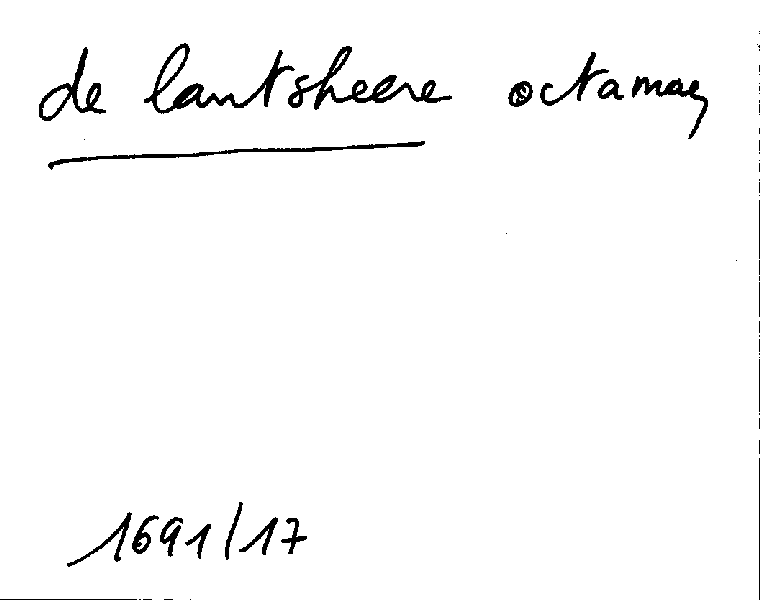 de lantsheere octamaq
1691/17